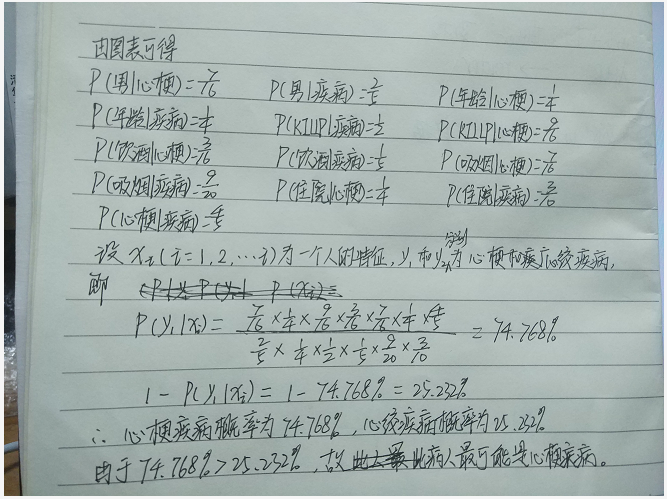 由图表可得
P(男|心梗)=7/16 P(男|疾病)=2/5 P(年龄|心梗)=1/4
P(年龄|疾病)=1/4 P(KILLP|疾病)=1/2 P(KILLP|心梗)=9/16
P(饮酒|心梗)=3/16 P(饮酒|疾病)=1/5 P(吸烟|心梗)=7/16
P(吸烟|疾病)=9/20 P(住院|心梗)=1/4 P(住院|疾病)=3/10
P(心梗|疾病)=4/5
设 xᵢ(i=1,2,…i)为一个人的特征,y₁和y₂分别为心梗和心绞疾病,
即
P(y₁|xᵢ)= (7/16×1/4×9/16×3/16×7/16×1/4×4/5)/(2/5×1/4×1/2×1/5×9/20×3/10) = 74.768%
1-P(y₁|xᵢ)=1-74.768%=25.232%
∴心梗疾病概率为74.768%,心绞疾病概率为25.232%
由于74.768%>25.232%,故此病人最可能是心梗疾病。